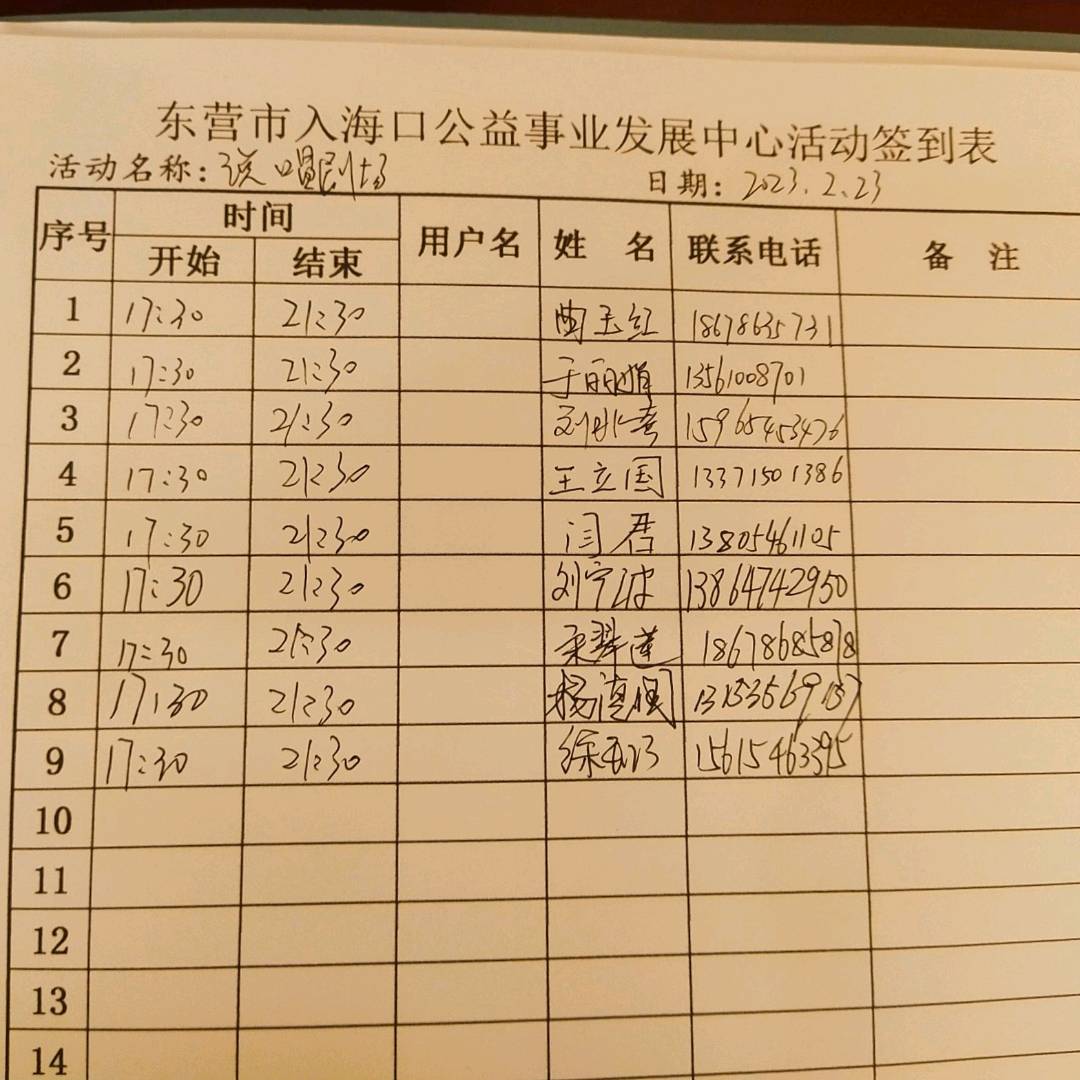 东营市入海口公益事业发展中心活动签到表
活动名称：说唱剧场 日期：2023.2.23
序号 时间 用户名 姓 名 联系电话 备 注
开始 结束
1 17:30 21:30 曲玉红 18678635731
2 17:30 21:30 于丽娟 13561008701
3 17:30 21:30 15965453476
4 17:30 21:30 王立国 13371501386
5 17:30 21:30 闫君 13805461105
6 17:30 21:30 刘宁波 13864742950
7 17:30 21:30 18678685878
8 17:30 21:30
9 17:30 21:30 15615463395
10
11
12
13
14